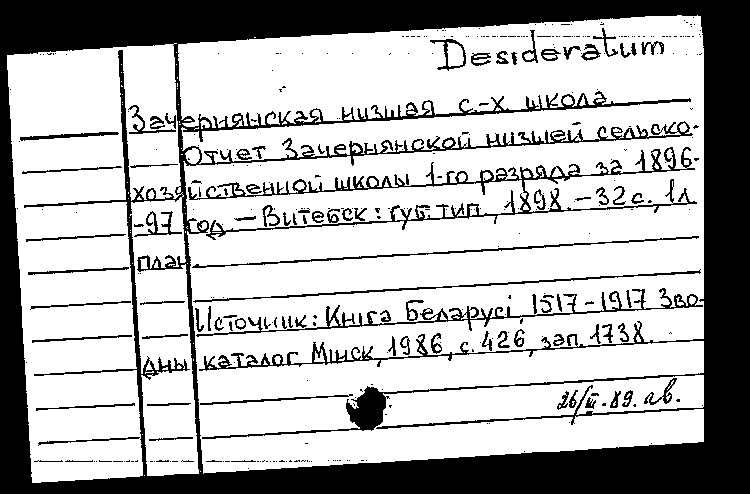 Desideratum
Зачернянская низшая с.-х. школа.
Отчет Зачернянской низшей сельско-
хозяйственной школы 1-го разряда за 1896-
-97 год. — Витебск: губ. тип., 1898. — 32 с., 1 л.
план.
Источник: Кніга Беларусі, 1517-1917 Зво-
дны каталог. Мінск, 1986, с. 426, зап. 1738.
26/III.89. ав.